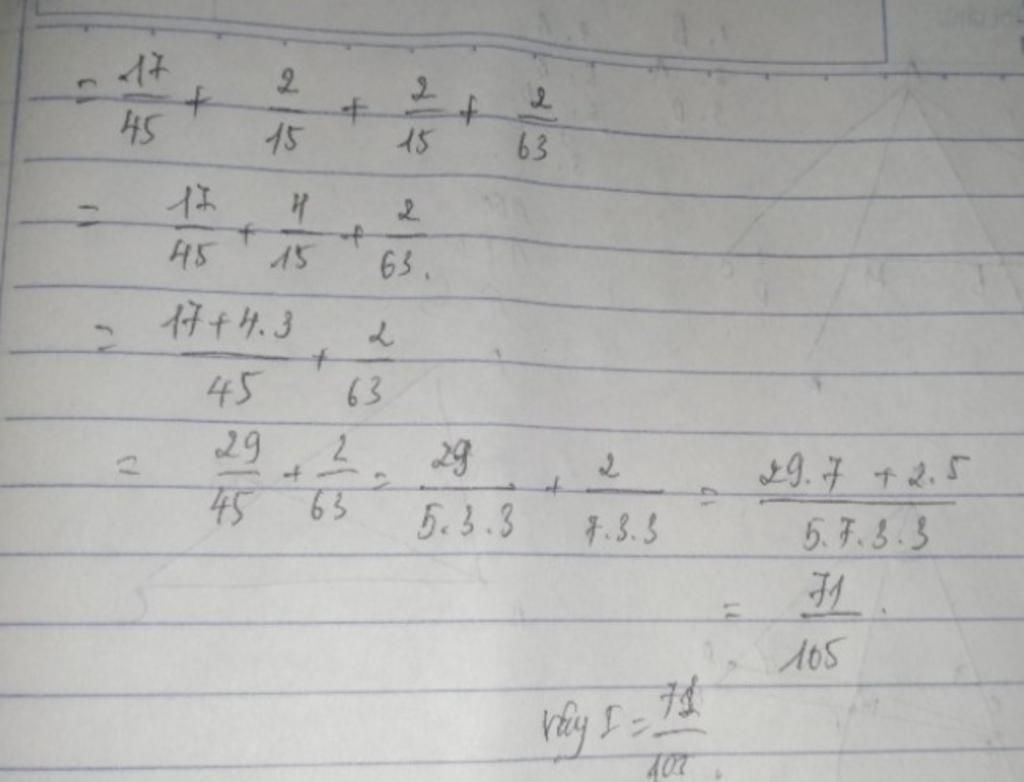 = 17/45 + 2/15 + 2/15 + 2/63
= 17/45 + 4/15 + 2/63.
= 17+4.3/45 + 2/63
= 29/45 + 2/63 = 29/5.3.3 + 2/7.3.3 = 29.7 + 2.5/5.7.3.3
= 71/105.
Vậy I = 71/